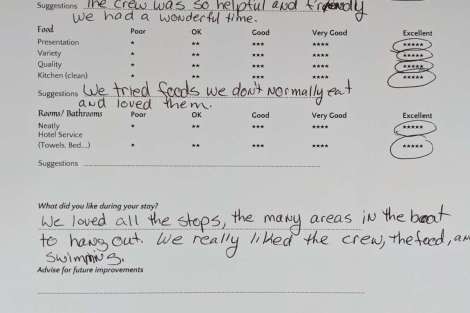 Suggestions The crew was so helpful and friendly
We had a wonderful time.
Food Poor OK Good Very Good Excellent
Presentation * ** *** **** *****
Variety * ** *** **** *****
Quality * ** *** **** *****
Kitchen (clean) * ** *** **** *****
Suggestions We tried foods we don't normally eat
and loved them.
Rooms/ Bathrooms Poor OK Good Very Good Excellent
Neatly * ** *** **** *****
Hotel Service
(Towels, Bed...) * ** *** **** *****
Suggestions
What did you like during your stay?
We loved all the stops, the many areas in the boat
to hang out. We really liked the crew, the food, an
swimming.
Advise for future improvements